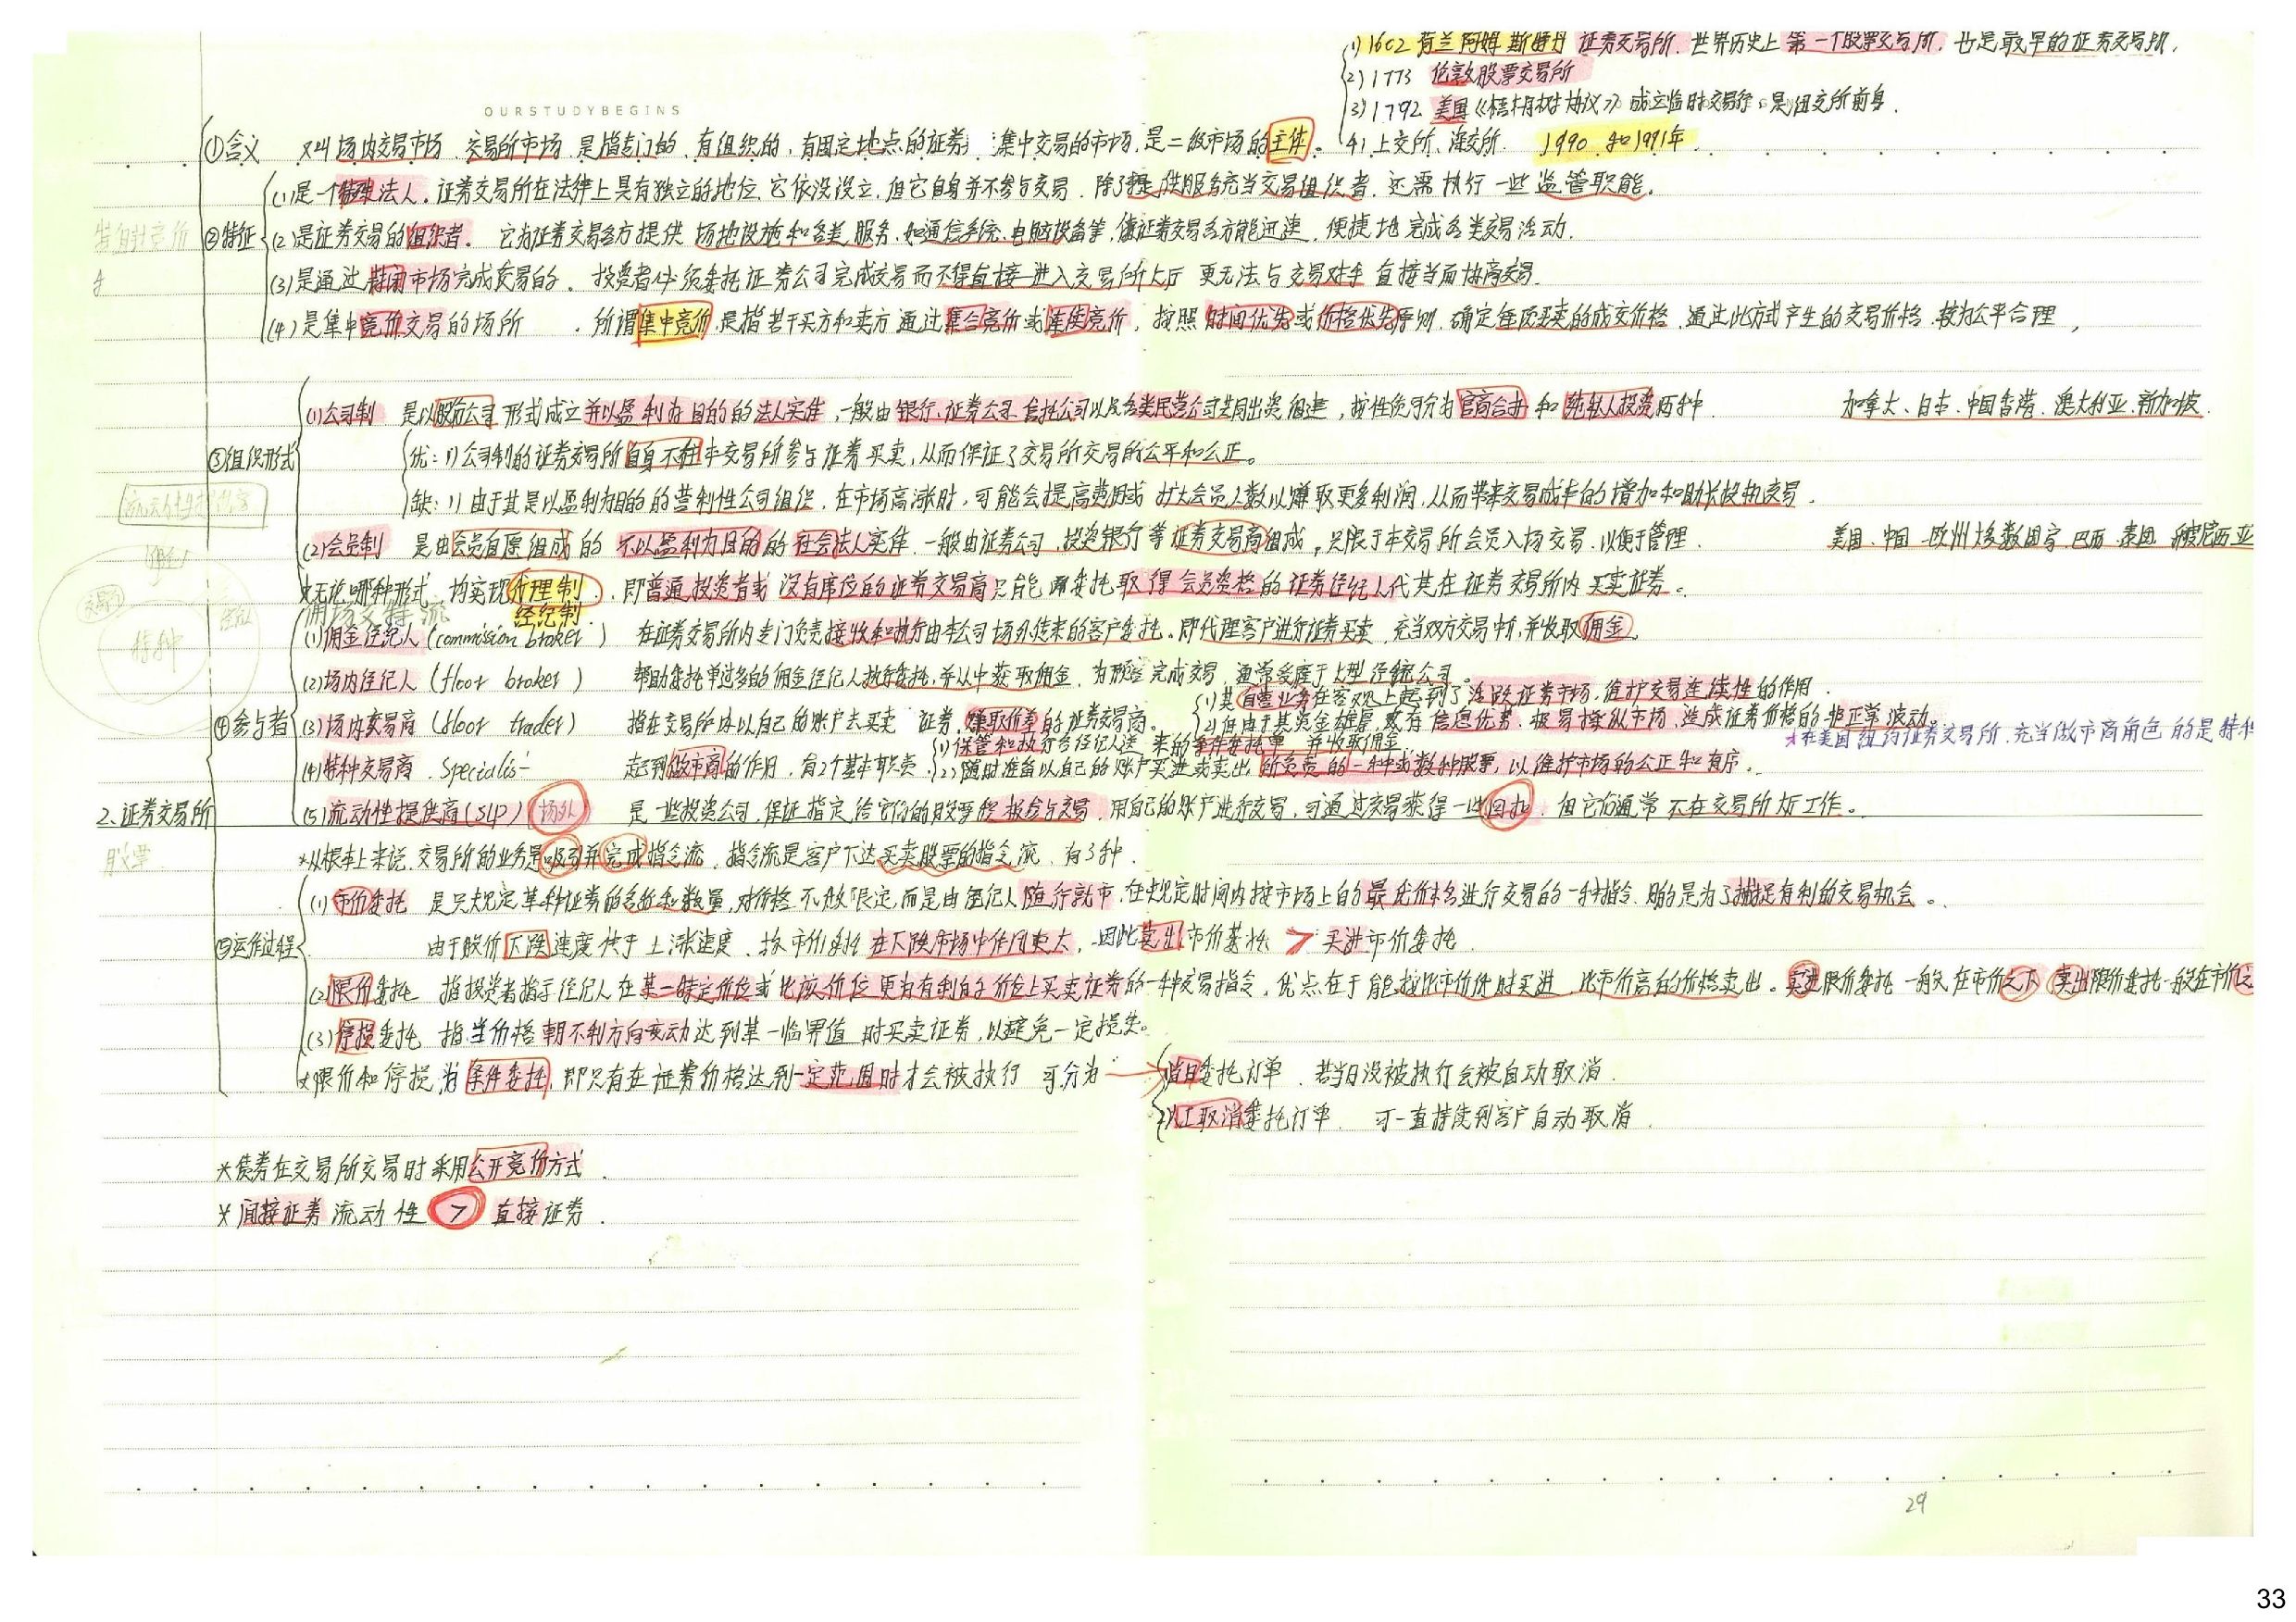 (1) 1602 荷兰阿姆斯特丹证券交易所. 世界历史上第一个股票交易所. 也是最早的证券交易所.
(2) 1773 伦敦股票交易所
(3) 1792 美国《梧桐树协议》成立临时交易行,是纽交所前身.
OURSTUDYBEGINS
①含义 又叫场内交易市场、交易所市场.是指专门的、有组织的、有固定地点的证券 集中交易的市场,是二级市场的主体。 (4) 上交所、深交所. 1990和1991年.
(1)是一个特殊法人.证券交易所在法律上具有独立的地位,它依没设立.但它自身并不参与交易.除了提供服务充当交易组织者.还需执行一些监管职能.
特 竞价
②特征 (2)是证券交易的组织者。它为证券交易各方提供 场地设施和各类服务.如通信系统、电脑设备等,使证券交易各方能迅速、便捷地完成各类交易活动.
(3)是通过封闭市场完成交易的。投资者必须委托证券公司完成交易而不得直接进入交易所大厅 更无法与交易对手直接当面协商交易.
(4)是集中竞价交易的场所 .所谓集中竞价,是指若干买方和卖方通过集合竞价或连续竞价,按照时间优先或价格优先原则,确定每项买卖的成交价格.通过此方式产生的交易价格.较为公平合理,
(1)公司制 是以股份公司形式成立并以盈利为目的的法人实体,一般由银行、证券公司、信托公司以及各类民营公司共同出资组建,按性质可分为官商合办和纯私人投资两种. 加拿大、日本、中国香港、澳大利亚、新加坡.
③组织形式 优: 1) 公司制的证券交易所自身不在本交易所参与证券买卖,从而保证了交易所交易的公平和公正。
缺: 1) 由于其是以盈利为目的的营利性公司组织,在市场高涨时,可能会提高费用或扩大会员人数以赚取更多利润,从而带来交易成本的增加和助长投机交易.
(2)会员制 是由会员自愿组成的不以盈利为目的的社会法人实体.一般由证券公司、投资银行等证券交易商组成,只限于本交易所会员入场交易.以便于管理. 美国、中国、欧洲大多数国家、巴西、泰国、印度尼西亚
*无论哪种形式,均实现代理制.即普通投资者或没有席位的证券交易商只能 委托取得会员资格的证券经纪人代其在证券交易所内买卖证券。
佣场交特流 经纪制
特种
(1)佣金经纪人 (commission broker) 在证券交易所内专门负责接收和执行由本公司场外传来的客户委托。即代理客户进行证券买卖.充当双方交易中介,并收取佣金.
(2)场内经纪人 (floor broker) 帮助委托单过多的佣金经纪人执行委托,并从中获取佣金. 完成交易.通常受雇于大型经纪公司。
(1)其自营业务在客观上起到了活跃证券市场,维护交易连续性的作用.
④参与者 (3)场内交易商 (floor trader) 指在交易所内以自己的账户去买卖 证券,赚取价差的证券交易商。 2)但由于其资金雄厚,或有信息优势.极易操纵市场.造成证券价格的非正常波动.
*在美国纽约证券交易所.充当做市商角色的是特种
(1)保管和执行各经纪人送来的条件委托单 并收取佣金
(4)特种交易商. Specialis- 起到做市商的作用,有2个基本职责 (2)随时准备以自己的账户买进或卖出所负责的一种或数种股票,以维护市场的公正和有序.
2.证券交易所 (5)流动性提供商(SLP) 场外 是一些投资公司,保证指定给它们的股票能报价与交易,用自己的账户进行交易,可通过交易获得一些回扣.但它们通常不在交易所大厅工作。
股票 *从根本上来说.交易所的业务是吸引并完成指令流.指令流是客户下达买卖股票的指令流.有3种.
(1)市价委托 是只规定某种证券的名称和数量,对价格不做限定,而是由经纪人随行就市,在规定时间内按市场上的最优价格进行交易的一种指令.目的是为了捕捉有利的交易机会。
⑤运作过程 由于股价下跌速度快于上涨速度.故市价委托在下跌市场中作用更大,因此卖出市价委托 > 买进市价委托.
(2)限价委托 指投资者指示经纪人在某一特定价位或比该价位更为有利的价位上买卖证券的一种交易指令.优点在于能按比市价低时买进,比市价高的价格卖出。买进限价委托一般在市价之下,卖出限价委托一般在市价之
(3)停损委托 指当价格朝不利方向变动达到某一临界值时买卖证券,以避免一定损失。
*限价和停损,为条件委托,即只有在证券价格达到一定范围时才会被执行 可分为 → 当日委托订单.若当日没被执行会被自动取消.
人工取消委托订单.可一直持续到客户自动取消.
*债券在交易所交易时采用公开竞价方式.
*间接证券流动性 > 直接证券.
29
33